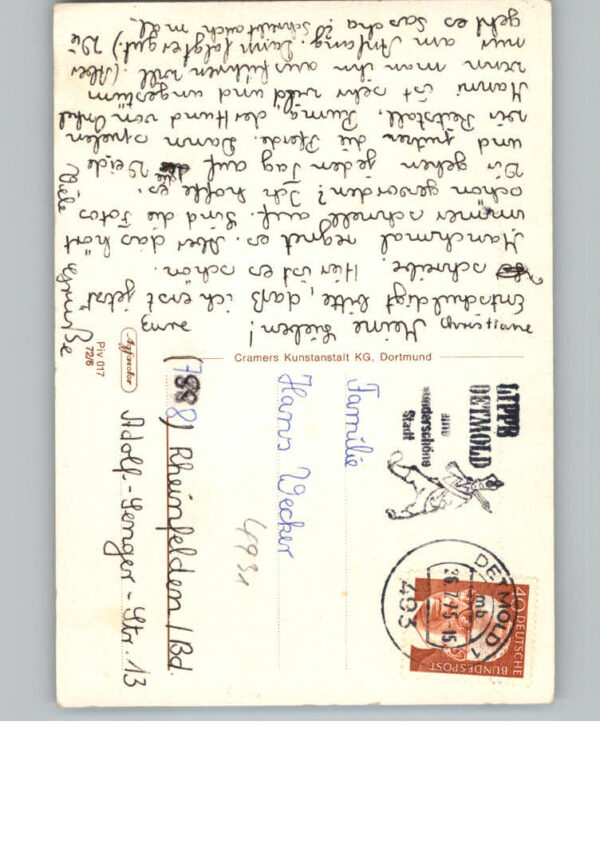 Meine Lieben!
Entschuldigt bitte, daß ich erst jetzt
schreibe. Hier ist es schön.
Manchmal regnet es. Aber das hört
immer schnell auf. Sind die Fotos
schon geworden? Ich hoffe es.
Wir gehen jeden Tag auf die Weide
und füttern die Pferde. Dann spielen
wir Reitstall, der Hund von Onkel
Hanni ist sehr wild und ungestüm
wenn man ihn ausführen will. (Aber
nur am Anfang. Dann folgt er gut.) Wie
geht es Sascha? Schreibt auch mal.
Viele Grüße
eure
Christiane
Cramers Kunstanstalt KG, Dortmund
Piv 017
72/6
LIPPE
DETMOLD
eine
wunderschöne
Stadt
DETMOLD 1
mb
493
40 DEUTSCHE
BUNDESPOST
Familie
Hans Wecker
4931
(7888) Rheinfelden/Bd.
Adolf-Senger-Str. 13